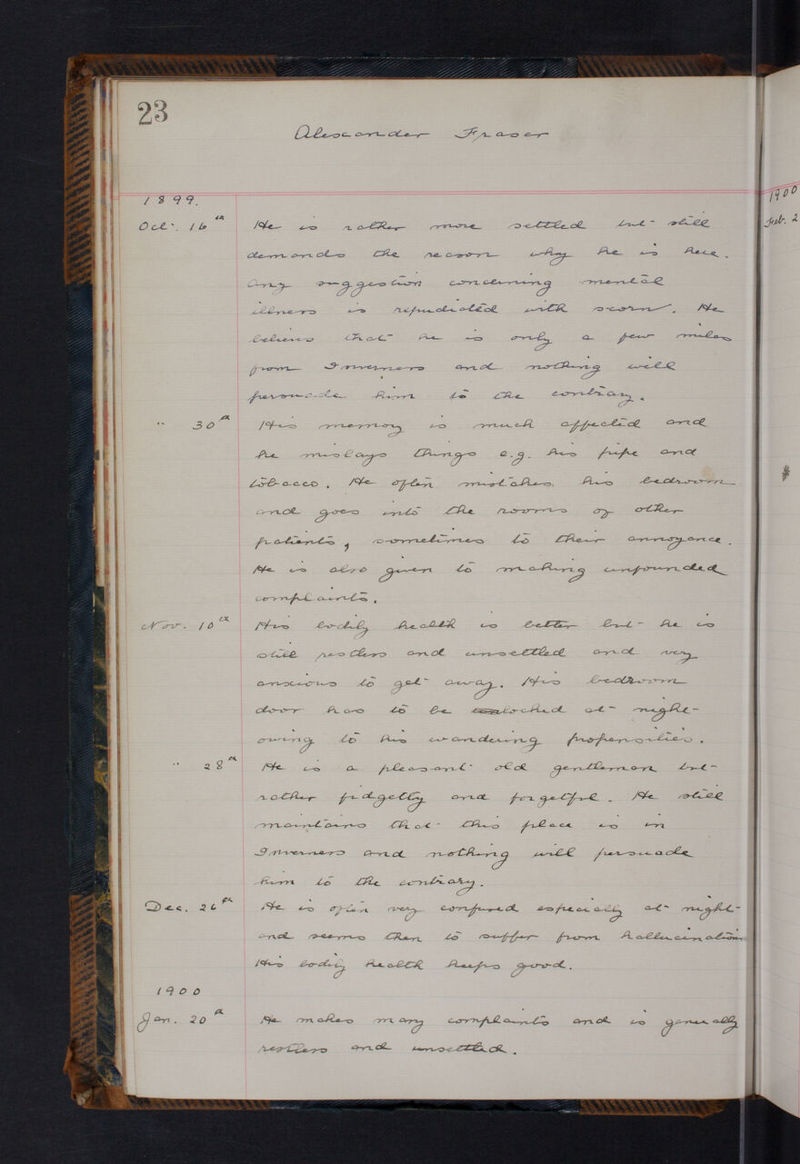 23
Alexander Fraser
1899.
Oct. 16th He is rather more settled but still
demands the reason why he is here.
Any suggestion concerning mental
illness is repudiated with scorn. He
believes that he is only a few miles
from Inverness and nothing will
persuade him to the contrary.
" 30th His memory is much affected and
he mislays things e.g. his pipe and
tobacco. He often mistakes his bedroom
and goes into the rooms of other
patients, sometimes to their annoyance.
He is also given to making unfounded
complaints.
Nov. 10th His bodily health is better but he is
still restless and unsettled and very
anxious to get away. His bedroom
door has to be locked at night
owing to his wandering propensities.
" 28th He is a pleasant old gentleman but
rather fidgetty and forgetful. He still
maintains that this place is in
Inverness and nothing will persuade
him to the contrary.
Dec. 26th He is often very confused especially at night
and seems then to suffer from hallucinations
His bodily health keeps good.
1900
Jan. 20th He makes many complaints and is generally
restless and unsettled.
1900
Feb. 2